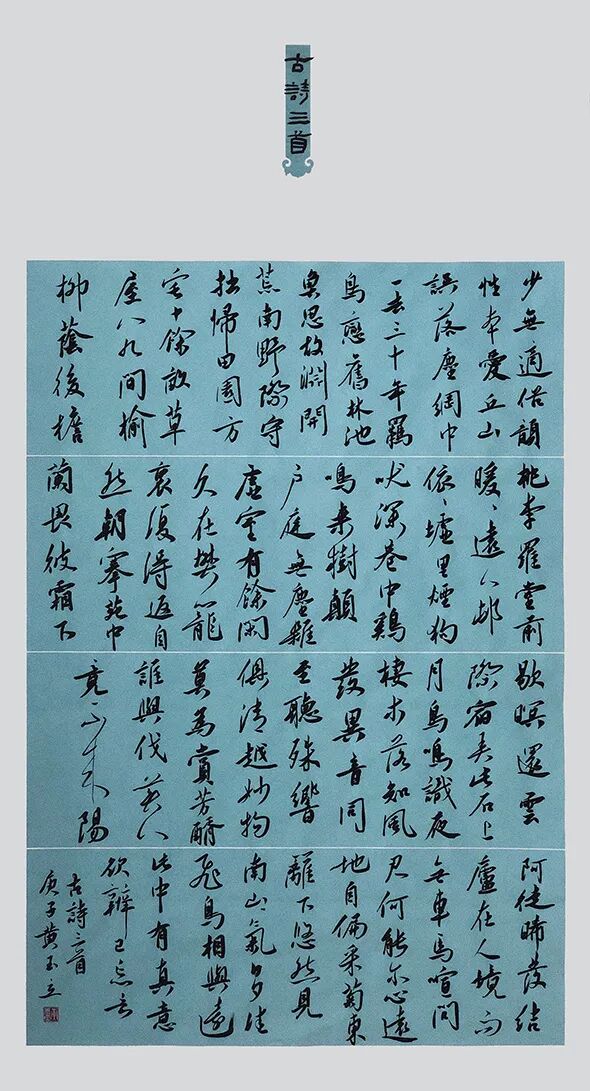 古詩三首
少無適俗韻
性本愛丘山
誤落塵網中
一去三十年羈
鳥戀舊林池
魚思故淵開
荒南野際守
拙歸田園方
宅十餘畝草
屋八九間榆
柳蔭後檐
桃李羅堂前
曖〻遠人邨
依〻墟里煙狗
吠深巷中鷄
鳴桑樹顛
戶庭無塵雜
虛室有餘閑
久在樊籠
裏復得返自
然朝搴苑中
蘭畏彼霜下
歇暝還雲
際宿弄此石上
月鳥鳴識夜
棲木落知風
發異音同
至聽殊響
俱清越妙物
莫為賞芳醑
誰與伐美人
竟不來陽
阿徒晞髮結
廬在人境而
無車馬喧問
君何能尔心遠
地自偏采菊東
籬下悠然見
南山氣日夕佳
飛鳥相與還
此中有真意
欲辨已忘言
古詩三首
庚子黃玉立